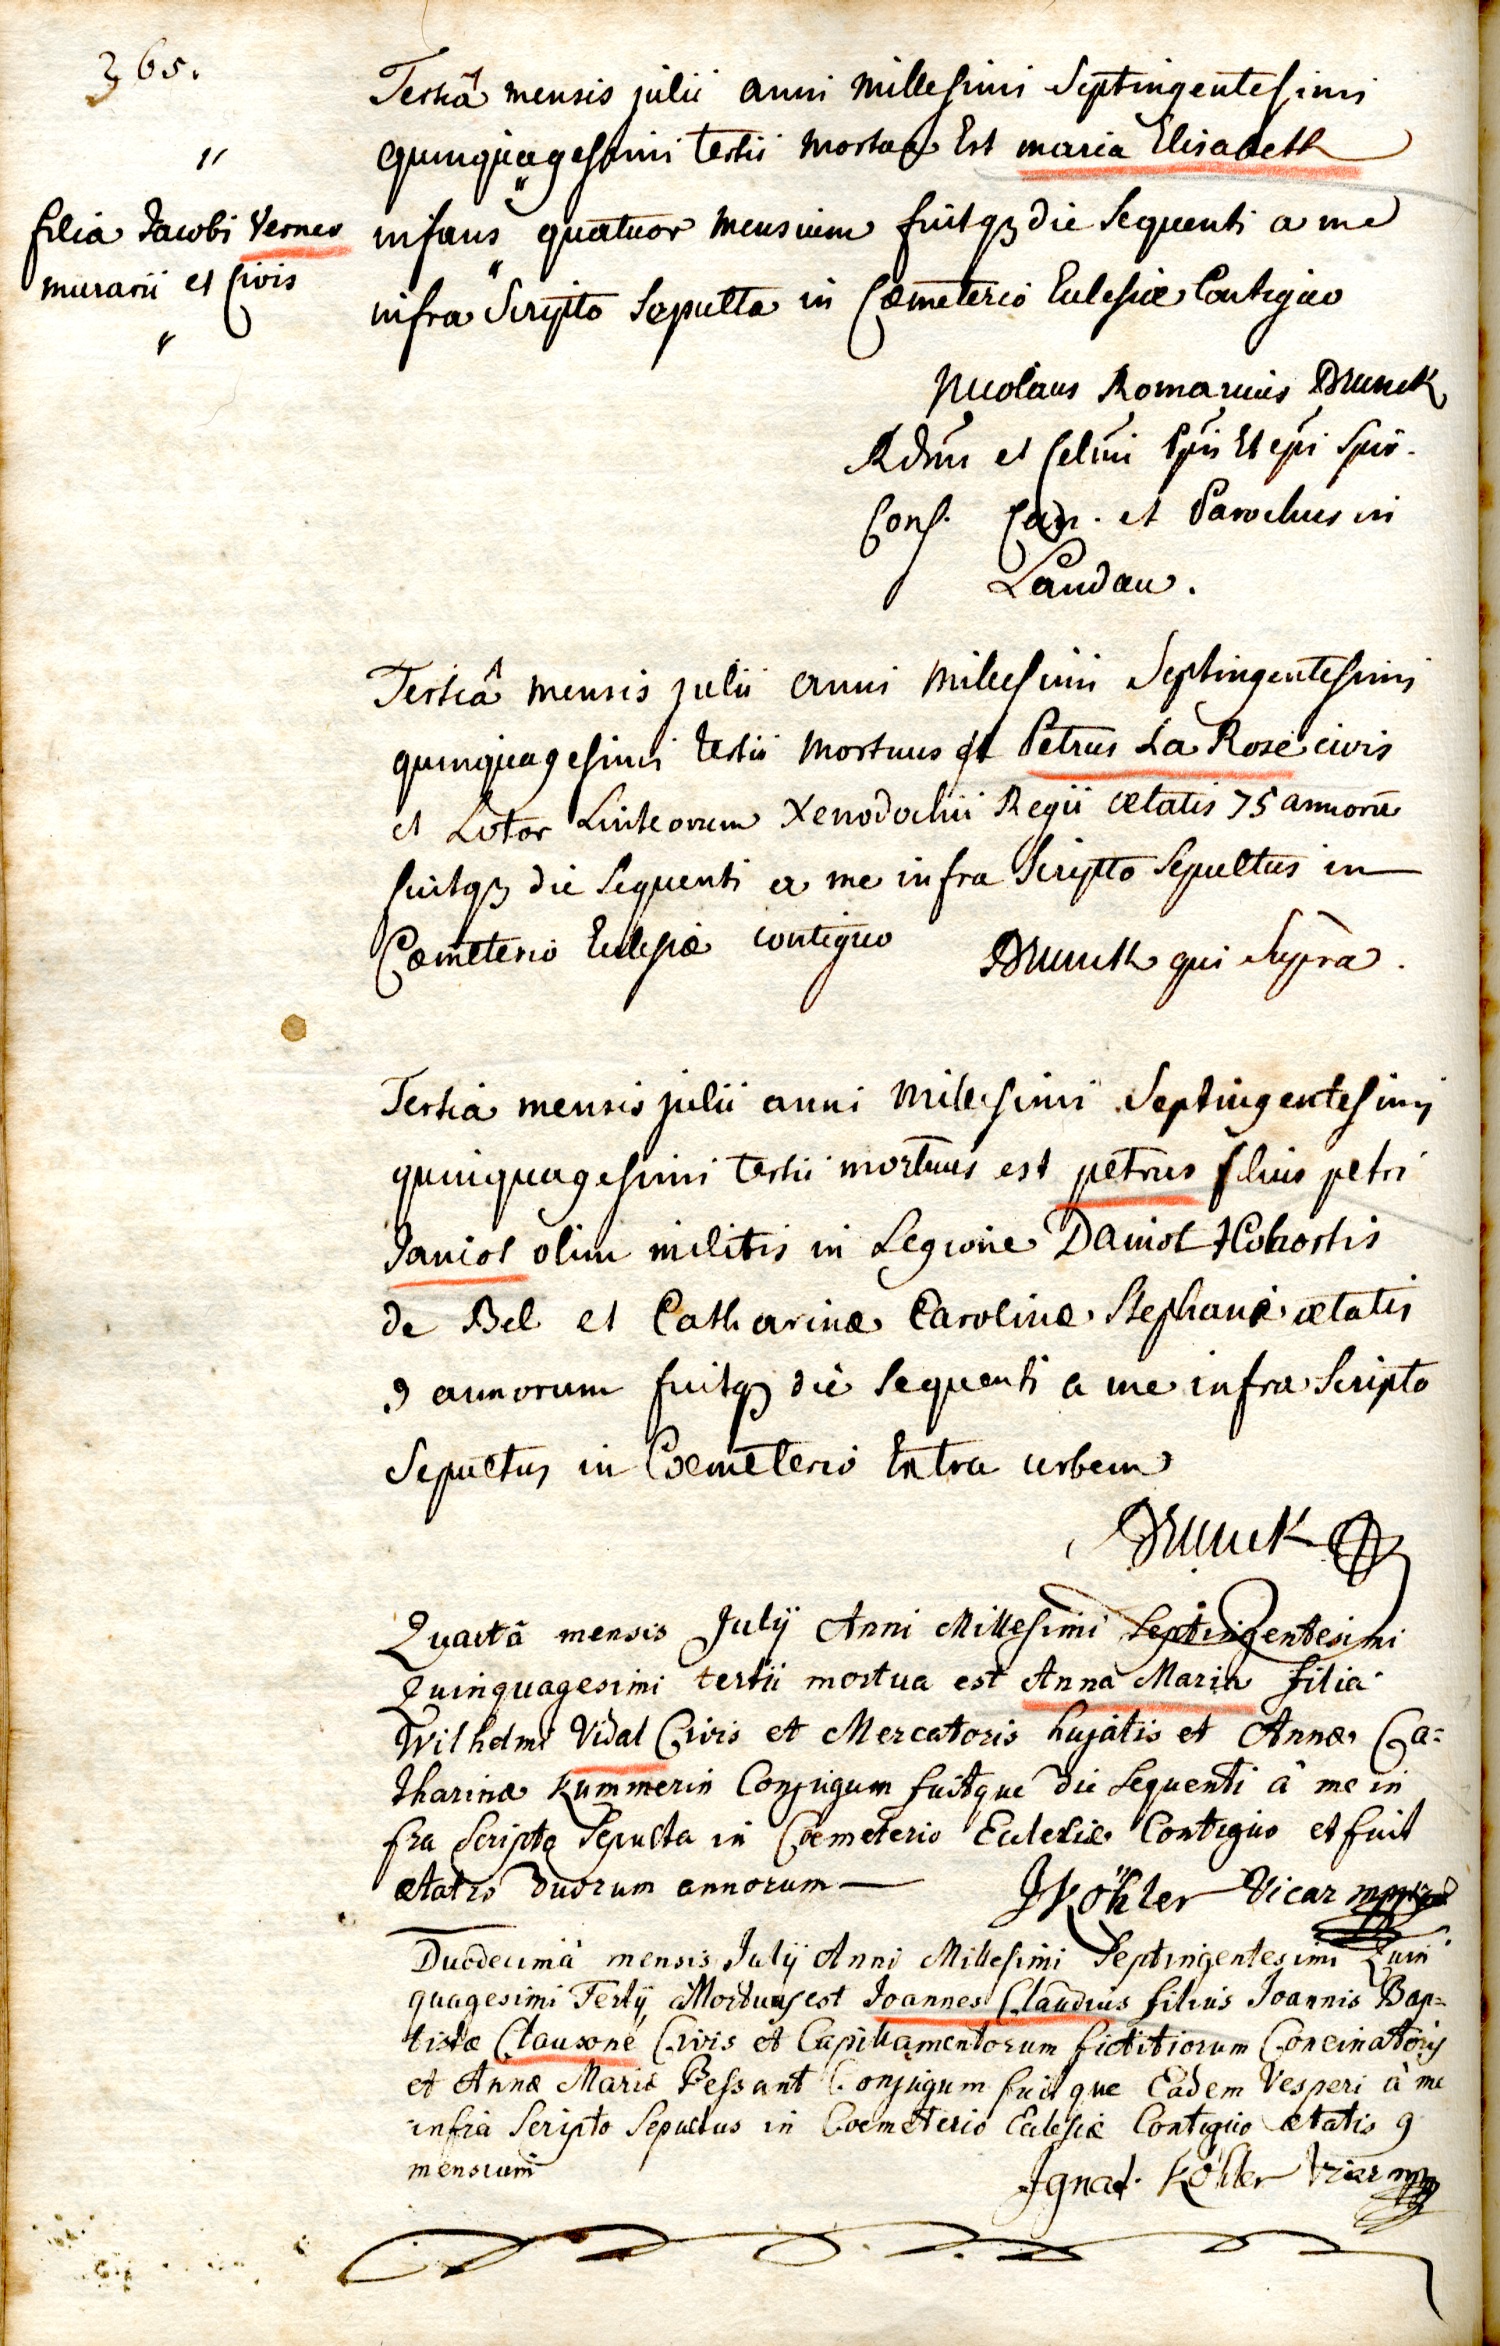 365.
Tertiâ mensis julii anni Millesimi Septingentesimi
quinquagesimi tertii mortua Est maria Elisabeth
"
filia Jacobi Verner
murarii et Civis
"
infans quatuor mensium fuitqz die sequenti a me
infra Scripto Sepulta in Cœmeterio Eclesiæ Contiguo
Nicolaus Romarius Brunck
Rdmi et Celmi Epi Spir.
Cons. Can. et Parochus in
Landau.
Tertiâ mensis julii anni Millesimi Septingentesimi
quinquagesimi tertii Mortuus est Petrus La Rose civis
et Lotor Linteorum Xenodochii Regii ætatis 75 annorū
fuitqz die sequenti a me infra Scripto Sepultus in
Cœmeterio Eclesiæ contiguo Brunck qui Supra.
Tertia mensis julii anni Millesimi Septingentesimi
quinquagesimi tertii mortuus est petrus filius petri
Janiot olim militis in Legione Daniol Cohortis
de Bel et Catharinæ Carolinæ Stephani ætatis
9 annorum fuitqz die sequenti a me infra Scripto
Sepultus in Cœmeterio Extra urbem
Brunck
Quartâ mensis Julÿ Anni Millesimi Septingentesimi
Quinquagesimi tertii mortua est Anna Maria filia
Wilhelmi Vidal Civis et Mercatoris hujatis et Annæ Ca=
tharinæ Kummerin Conjugum fuitque die sequenti â me in
fra Scripto Sepulta in Cœmeterio Eclesiæ Contiguo et fuit
ætatis duorum annorum
JKöhler Vicar mppria
Duodecimâ mensis Julÿ Anni Millesimi Septingentesimi Quin
quagesimi Tertÿ Mortuus est Joannes Claudius filius Joannis Bap=
tistæ Clausone Civis et Capillamentorum fictitiorum Concinatoris
et Annæ Mariæ Bessant Conjugum fuitque Eadem Vesperi â me
infra Scripto Sepultus in Coemeterio Eclesiæ Contiguo ætatis 9
mensium
Ignat. Köhler Vicar mpp